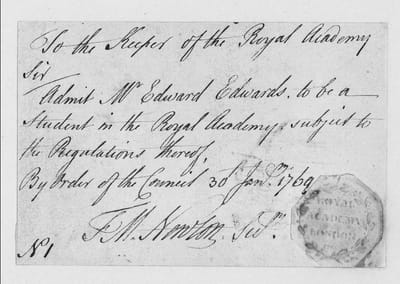 To the Keeper of the Royal Academy
Sir
Admit Mr Edward Edwards. to be a
Student in the Royal Academy, subject to
the Regulations thereof,
By Order of the Council 30th Janry 1769
F. M. Newton. Secry.
No 1
ROYAL
ACADEMY
LONDON